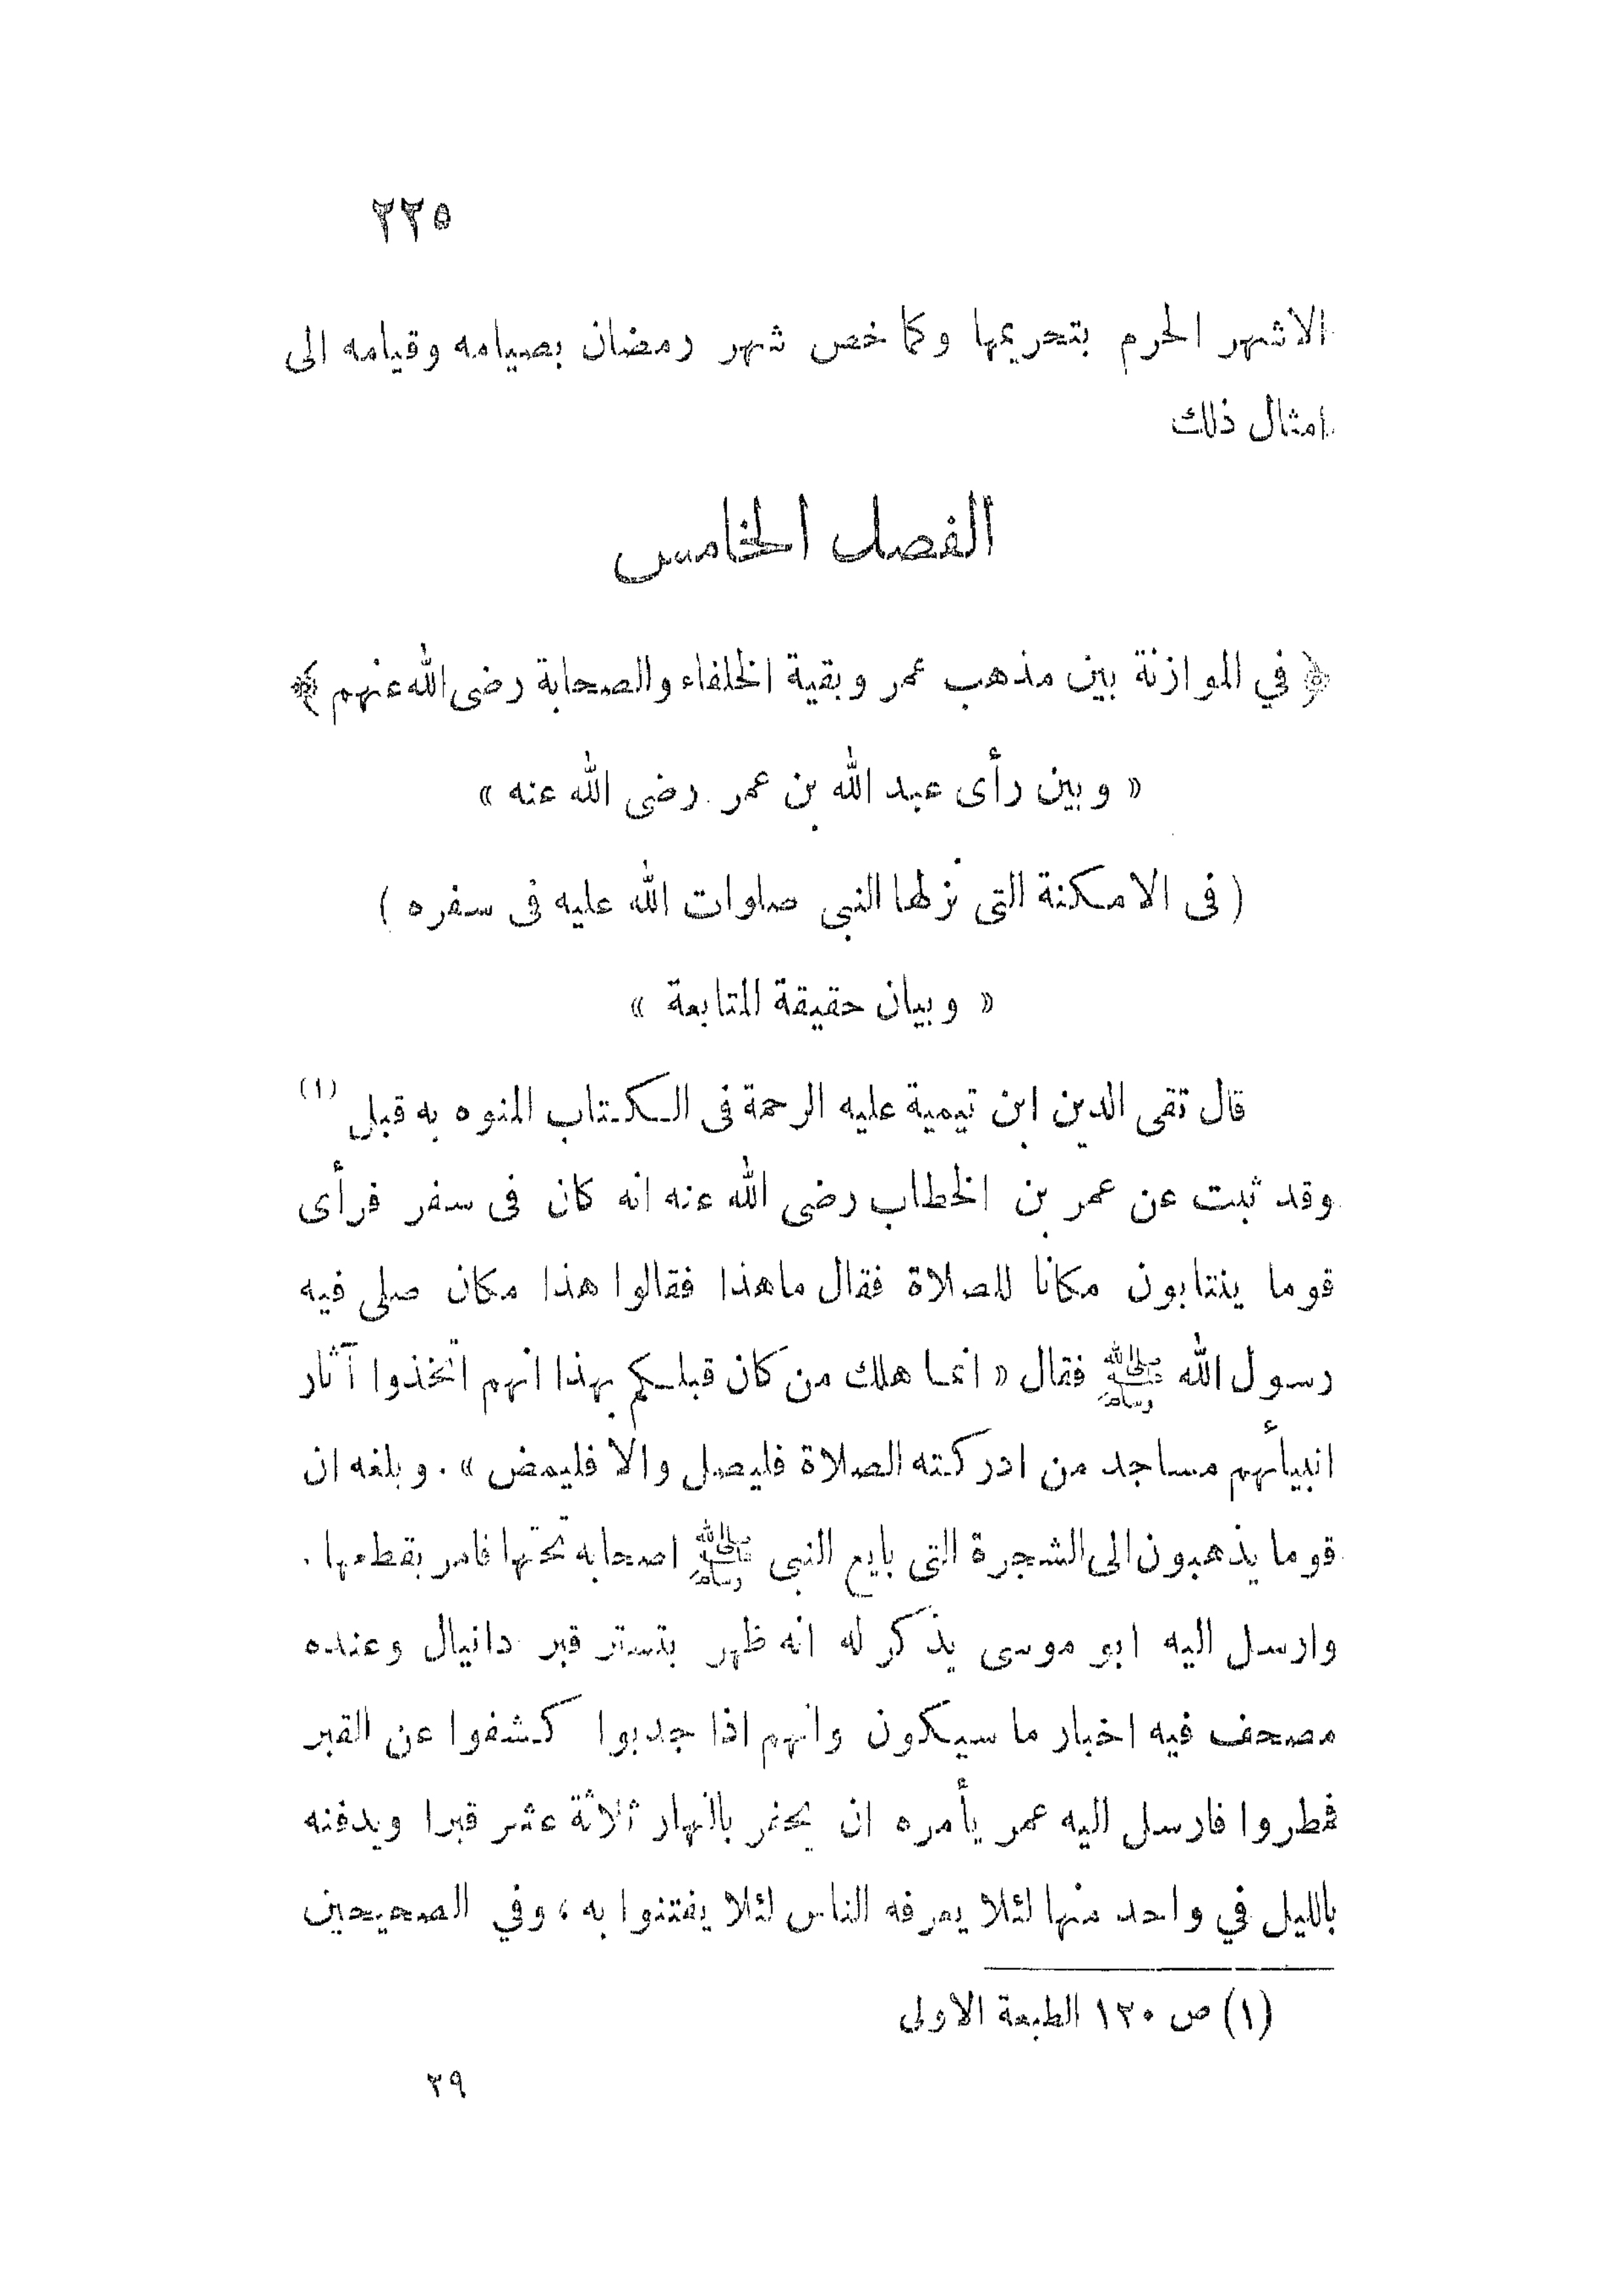 ٢٢٥
الاشهر الحرم بتحريمها وكما خص شهر رمضان بصيامه وقيامه الى
امثال ذلك
الفصل الخامس
﴿ في الموازنة بين مذهب عمر وبقية الخلفاء والصحابة رضى الله عنهم ﴾
« وبين رأى عبد الله بن عمر رضى الله عنه »
( فى الامكنة التى نزلها النبى صلوات الله عليه فى سفره )
« وبيان حقيقة المتابعة »
قال تقى الدين ابن تيمية عليه الرحمة فى الكتاب المنوه به قبل (١)
وقد ثبت عن عمر بن الخطاب رضى الله عنه انه كان فى سفر فرأى
قوما ينتابون مكانا للصلاة فقال ماهذا فقالوا هذا مكان صلى فيه
رسول الله ﷺ فقال « انما هلك من كان قبلكم بهذا انهم اتخذوا آثار
انبيأهم مساجد من ادركته الصلاة فليصل والا فليمض » . وبلغه ان
قوما يذهبون الى الشجرة التى بايع النبى ﷺ اصحابه تحتها فامر بقطعها .
وارسل اليه ابو موسى يذكر له انه ظهر بتستر قبر دانيال وعنده
مصحف فيه اخبار ما سيكون وانهم اذا جدبوا كشفوا عن القبر
فمطروا فارسل اليه عمر يأمره ان يحفر بالنهار ثلاثة عشر قبرا ويدفنه
بالليل في واحد منها لئلا يعرفه الناس لئلا يفتنوا به ، وفي الصحيحين
(١) ص ١٢٠ الطبعة الاولى
٢٩